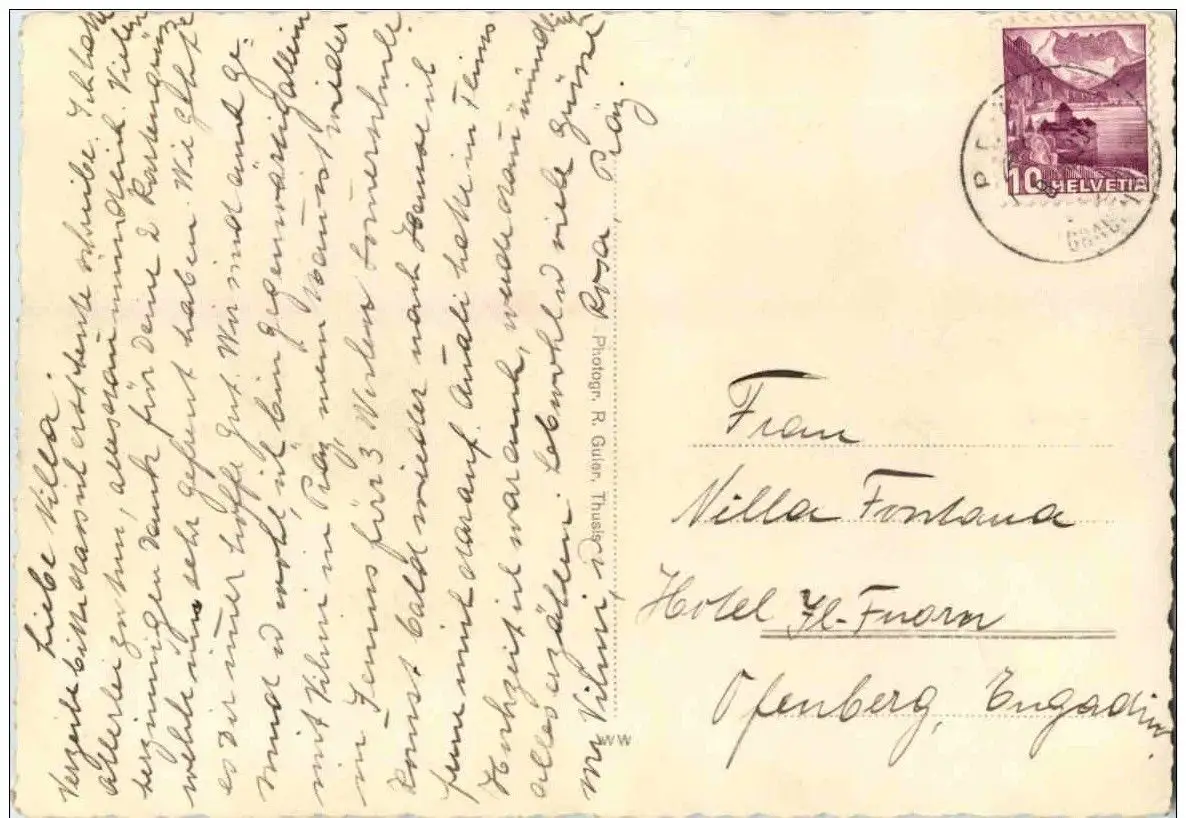 Liebe Nilla.
Verzeihe bitte dass ich erst heute schreibe. Ich hatte
allerlei zu tun, alles zu mündlich. Vielen
herzinnigen Dank für Deine 2 Kartengrüsse
welche uns sehr gefreut haben. Wie geht
es Dir immer hoffe gut. Wir sind amt ge-
sund u wohl, ich bin gegenwärtig allein
mit Vilmi in Präz, wann kommst wieder
in Ferien für 3 Wochen
kommst bald wieder nach Hause ich
freu mich darauf. hatte in Flims
Hochzeit ich war auch, werde dann mündlich
alles erzählen. Lebwohl u viele Grüsse
Vilmi u Rosa, Präz.
Photogr. R. Guler, Thusis
WW
10 HELVETIA
Frau
Nilla Fontana
Hotel Il-Fuorn
Ofenberg, Engadin